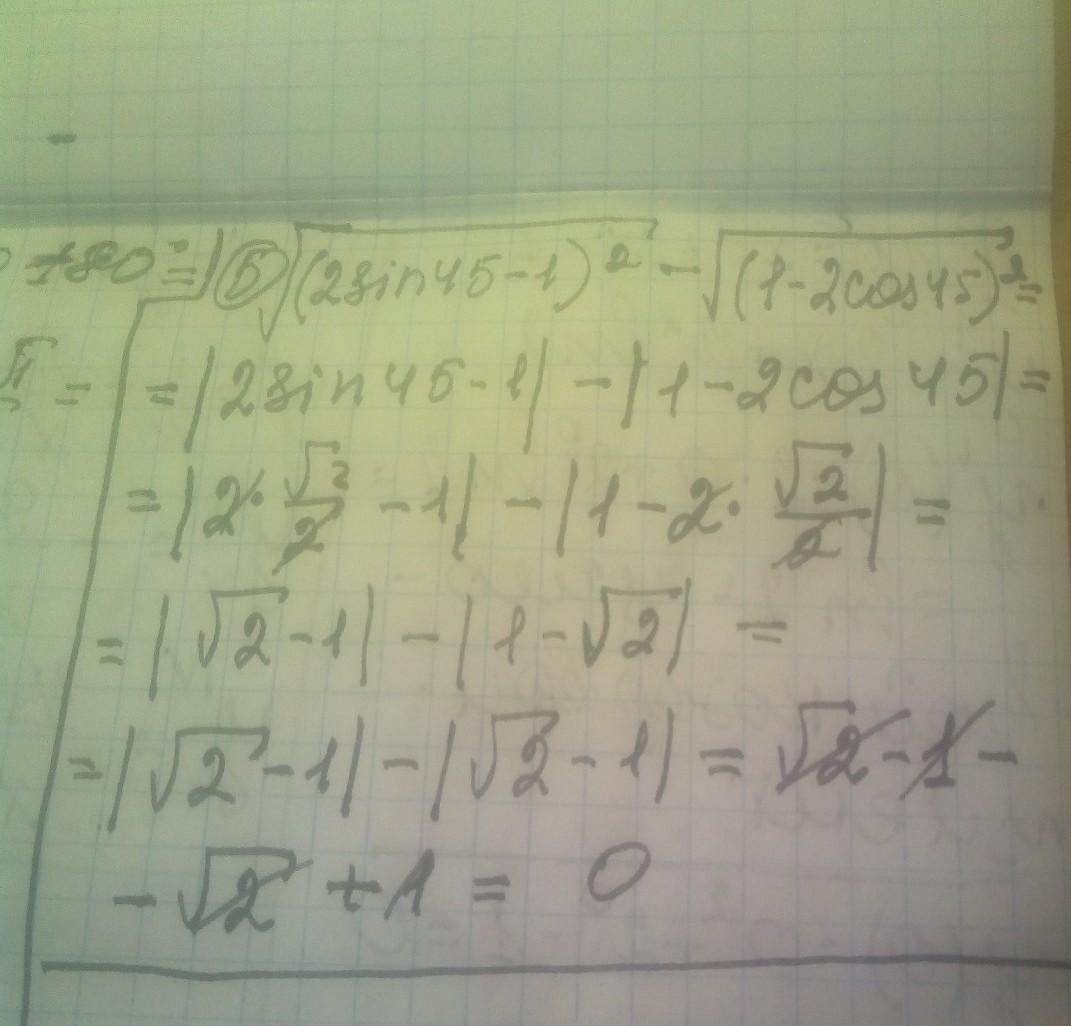 180° = ⑤ √(2sin45-1)² - √(1-2cos45)² =
= |2sin45-1| - |1-2cos 45| =
= |2·√2/2 - 1| - |1-2·√2/2| =
= |√2-1| - |1-√2| =
= |√2-1| - |√2-1| = √2-1 -
- √2 + 1 = 0